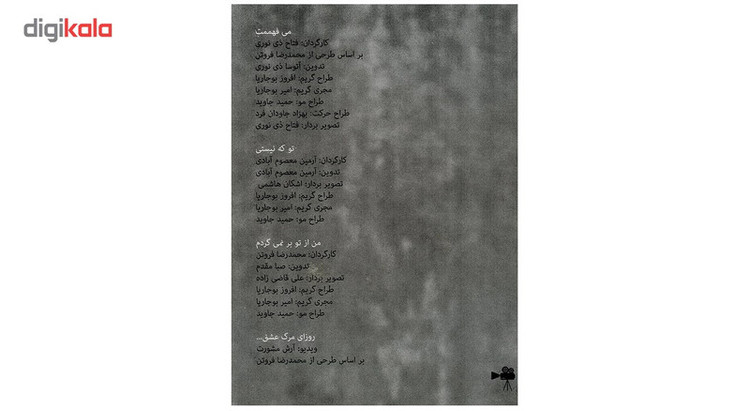 digikala
می فهممت
کارگردان: فتاح ذی نوری
بر اساس طرحی از محمدرضا فروتن
تدوین: آتوسا ذی نوری
طراح گریم: افروز بوجاریا
مجری گریم: امیر بوجاریا
طراح مو: حمید جاوید
طراح حرکت: بهزاد جاودان فرد
تصویر بردار: فتاح ذی نوری
تو که نیستی
کارگردان: آرمین معصوم آبادی
تدوین: آرمین معصوم آبادی
تصویر بردار: اشکان هاشمی
طراح گریم: افروز بوجاریا
مجری گریم: امیر بوجاریا
طراح مو: حمید جاوید
من از تو بر نمی گردم
کارگردان: محمدرضا فروتن
تدوین: صبا مقدم
تصویر بردار: علی قاضی زاده
طراح گریم: افروز بوجاریا
مجری گریم: امیر بوجاریا
طراح مو: حمید جاوید
روزای مرگ عشق...
ویدیو: آرش مشورت
بر اساس طرحی از محمدرضا فروتن